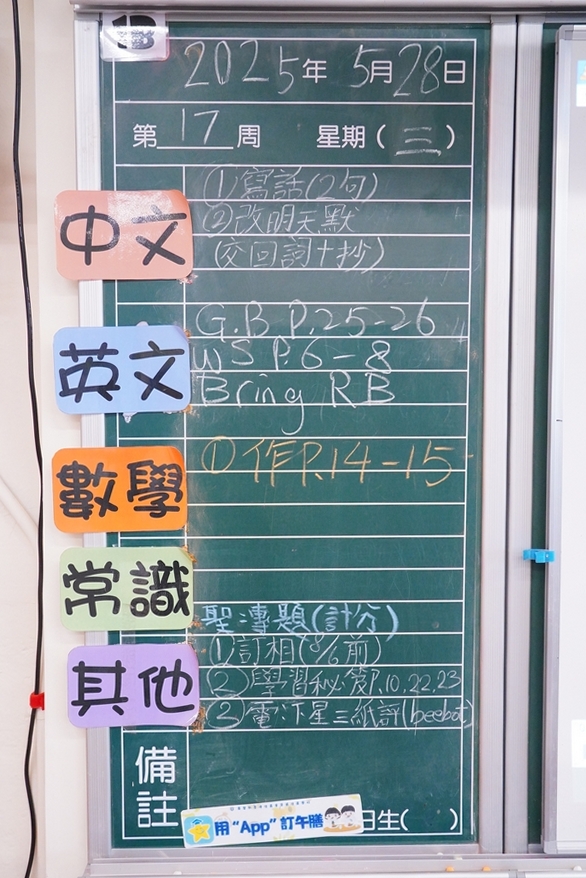 2025年 5月28日
第17周 星期(三)
中文
①寫話(2句)
②改明天默
(交回詞+抄)
英文
G.B P.25-26
WS P.6-8
Bring RB
數學
①作P.14-15
常識
其他
①訂相(8/6前)
②學習秘笈P.10.22.23
③電 星三紙評(beebot)
備註
用“App”訂午膳
日生( )